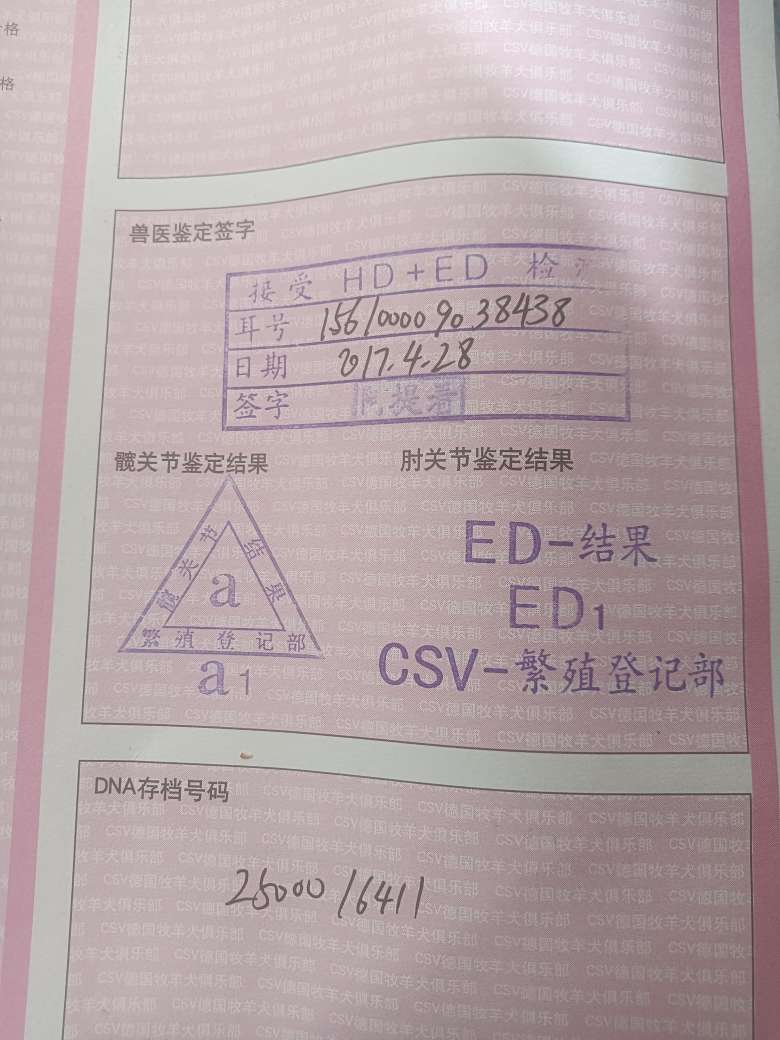 格
格
兽医鉴定签字
接受 HD+ED 检
耳号 156100009038438
日期 2017.4.28
签字
髋关节鉴定结果
肘关节鉴定结果
髋关节结果
a
繁殖登记部
a1
ED-结果
ED1
CSV-繁殖登记部
DNA存档号码
25000 16411
CSV德国牧羊犬俱乐部